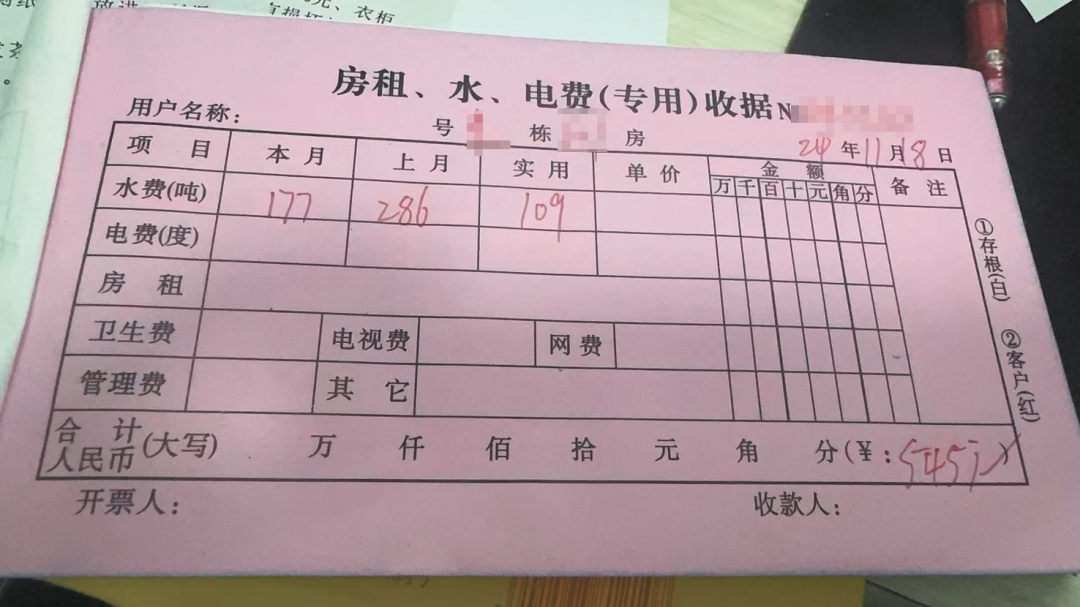 元、衣柜
房租、水、电费(专用)收据N
用户名称: 号 栋 房
24 年 11 月 18 日
项 目 本 月 上 月 实 用 单 价 金 额 备 注
万 千 百 十 元 角 分
水费(吨) 177 286 109
电费(度)
房 租
卫生费 电视费 网费
管理费 其 它
合 计 人民币 (大写) 万 仟 佰 拾 元 角 分(¥: 545元)
开票人: 收款人:
①存根(白)
②客户(红)